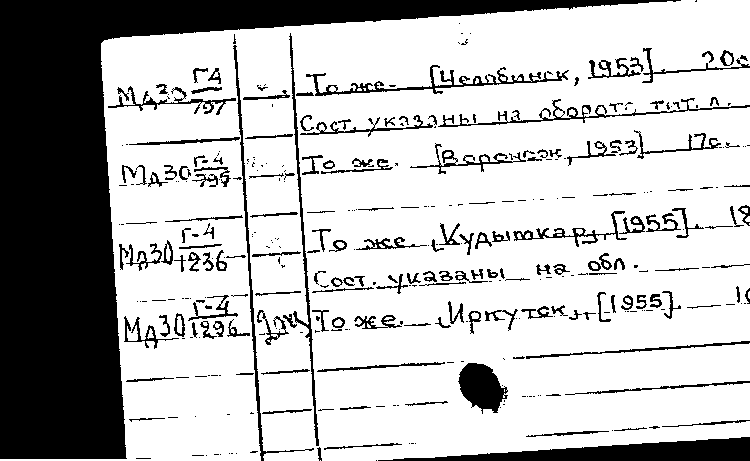 Мд30 Г-4/797 То же. [Челябинск, 1953]. 20с
Сост. указаны на обороте тит. л.
Мд30 Г-4/795 То же. [Воронеж, 1953] 17с.
Мд30 Г-4/1236 То же. „Кудымкар“, [1955]. 18
Сост. указаны на обл.
Мд30 Г-4/1296 То же. „Иркутск“, [1955]. 10